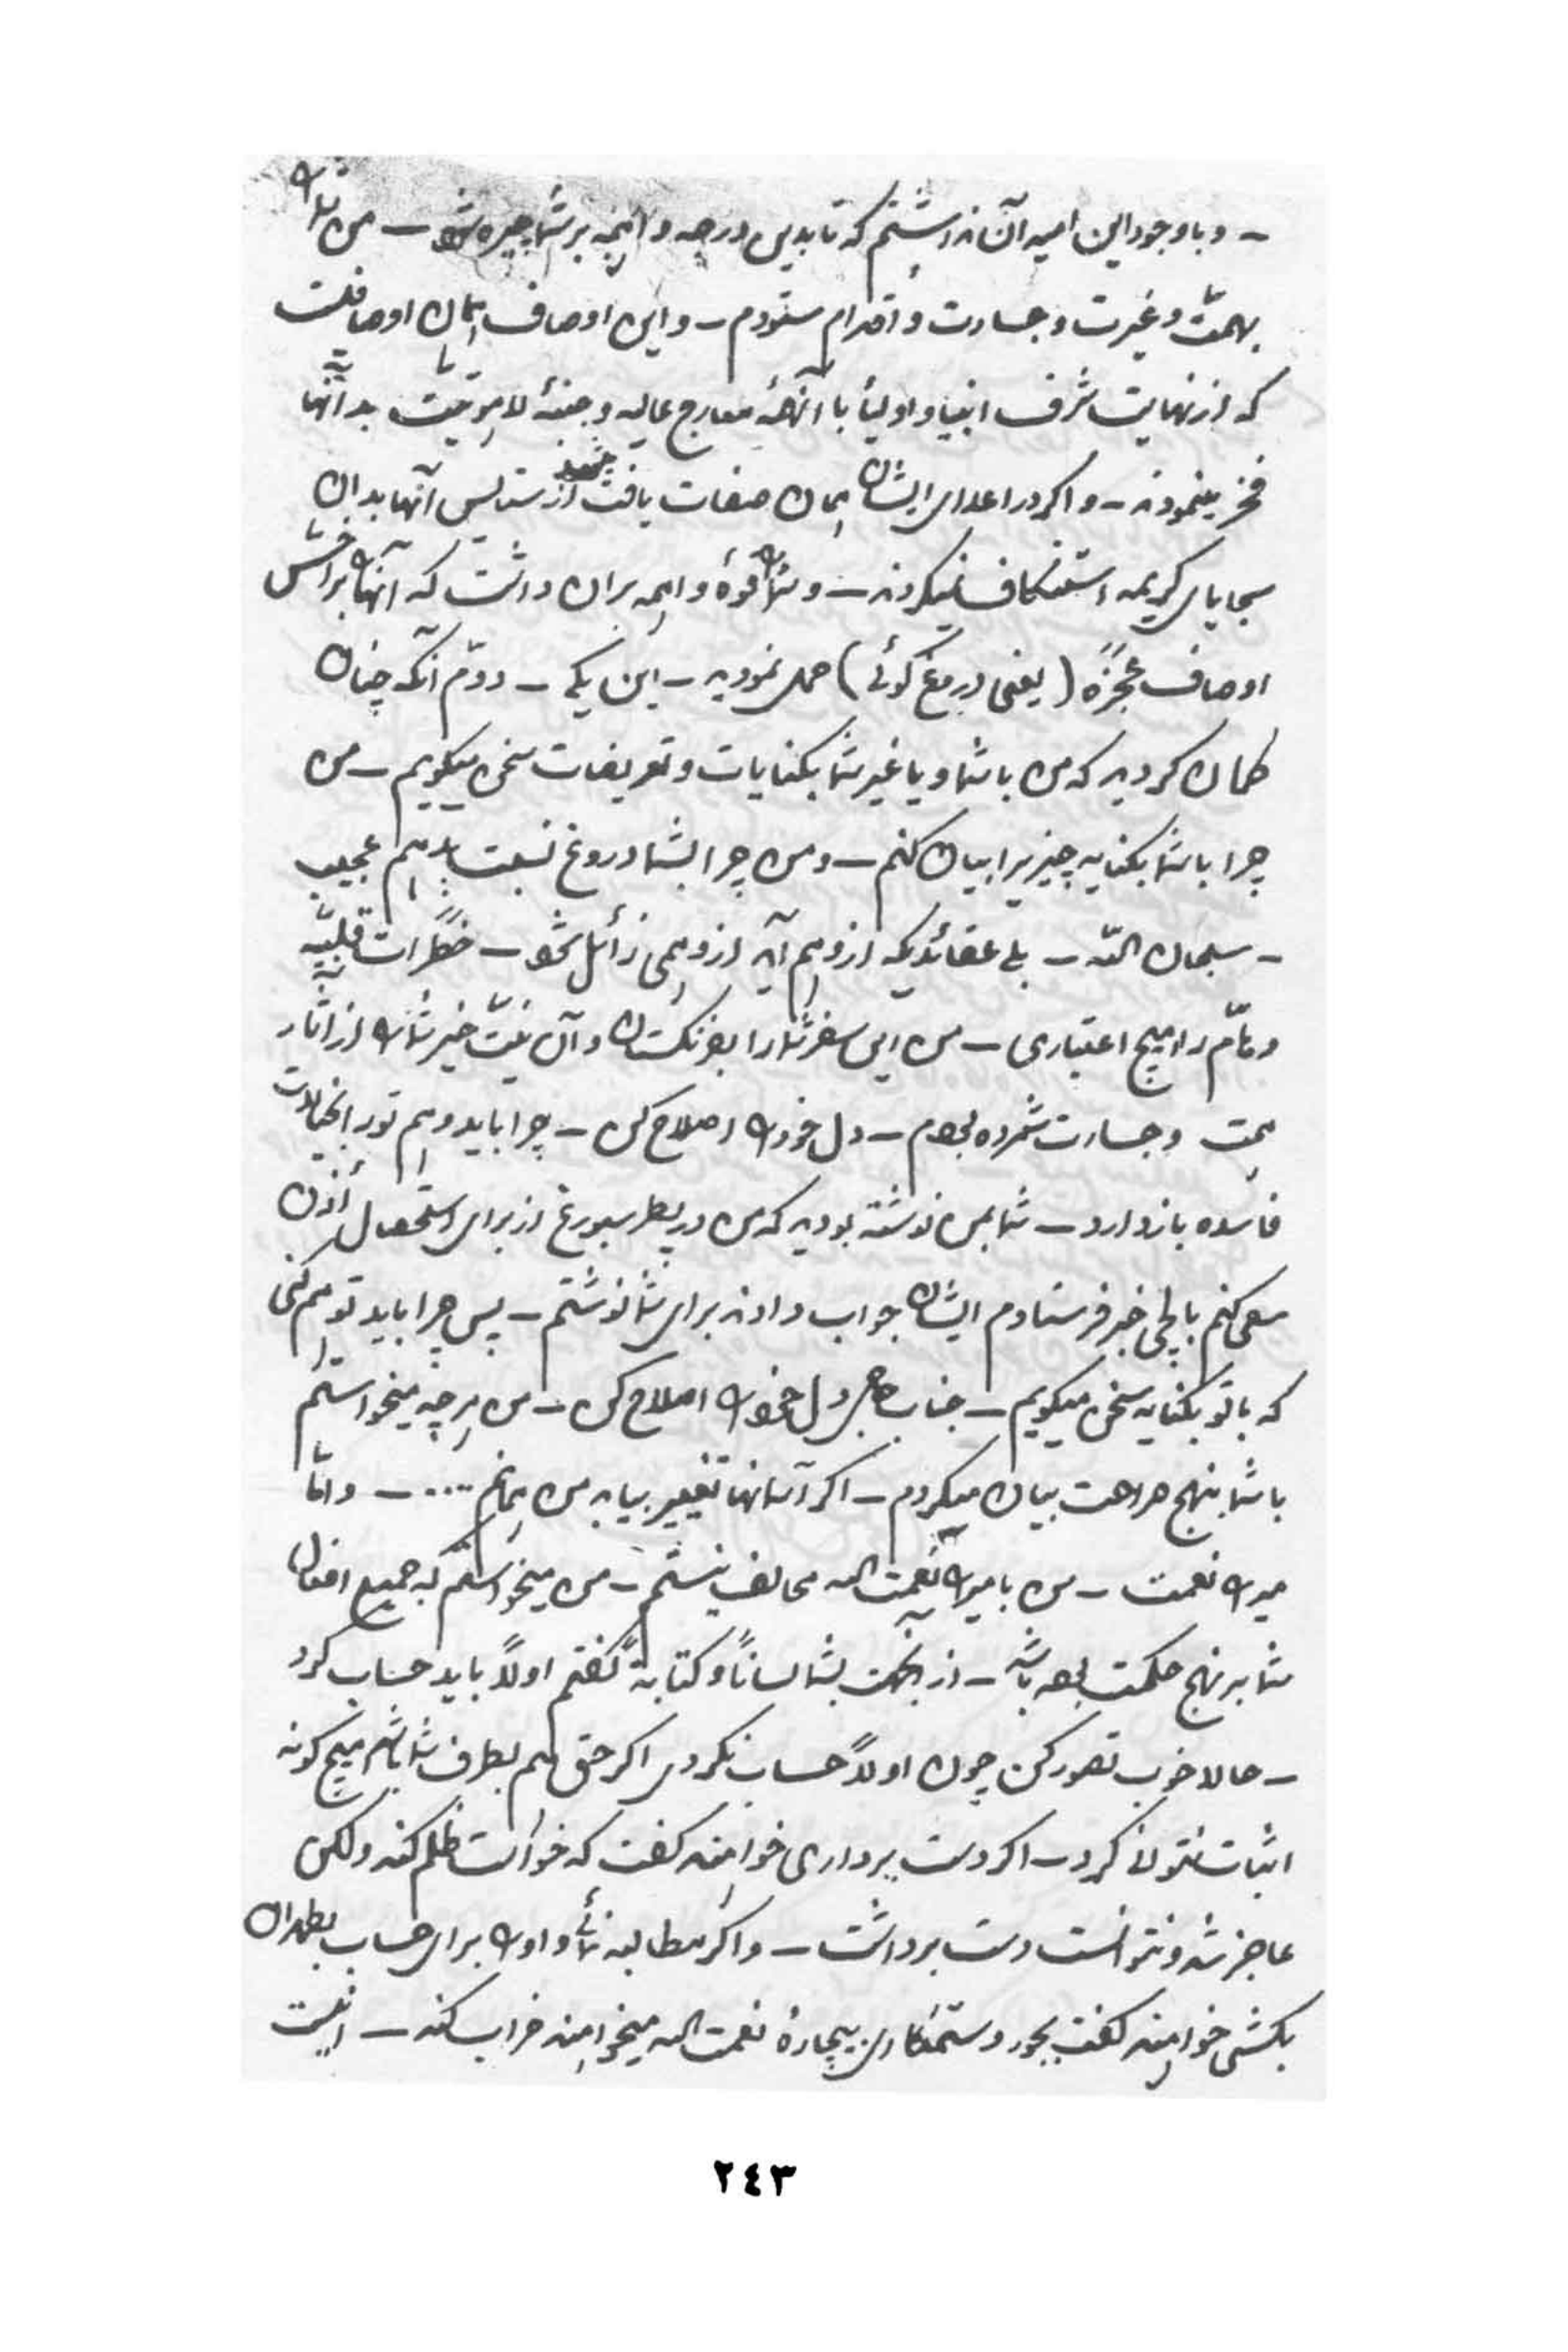 – و با وجود این امید آن نداشتم که تا بدین درجه واهمه بر شما چیره شود – من شما را
بهمّت و غیرت و جسارت و اقدام ستودم – و این اوصاف همان اوصافیست
که از نهایت شرف انبیا و اولیأ با آنهمهٔ معارج عالیه و جنبهٔ لاهوتیت بدانها
فخر مینمودند – و اگر در اعدای ایشان همان صفات یافت میشد از ستایس آنها بدان
سجایای کریمه استنکاف نمیکردند – و شما را قوهٔ واهمه بران داشت که آنها را بر اخسّ
اوصاف عَجَزَه (یعنی دروغ گوئی) حمل نمودید – این یکی – دوّم آنکه چنان
گمان کردید که من با شما و یا غیر شما بکنایات و تعریضات سخن میگویم – من
چرا با شما بکنایه چیزیرا بیان کنم – و من چرا بشما دروغ نسبت بدهم عجیب
– سبحان اللّه – بلی عقائدیکه از وهم آید از وهمی زائل شود – خطرات قلبیّه
و مأثم را هیچ اعتباری – من این سفر شما را بفرنگستان و آن نیّت خیر شما را از آثار
همت و جسارت شمرده بودم – دل خود را اصلاح کن – چرا باید وهم تو را بخیالات
فاسده باز دارد – شما بمن نوشته بودید که من در پطرسبورغ از برای استحصال اذن
سعی کنم بایلچی خبر فرستادم ایشان جواب دادند برای شما نوشتم – پس چرا باید توهم کنی
که با تو بکنایه سخن میگویم – جناب حاجی دل خود را اصلاح کن – من هر چه میخواستم
با شما بنهج صراحت بیان میکردم – اگر آسمانها تغییر بیابد من همانم .... – و امّا
میرزا نعمت – من با میرزا نعمت الله مخالف نیستم – من میخواستم که جمیع افعال
شما بر نهج حکمت بوده باشد – از آنجهت بشما لساناً و کتابةً گفتم اولاً باید حساب کرد
– حالا خوب تصور کن چون اولاً حساب نکردی اگر حق هم بطرف شما باشد هیچ گونه
اثبات نتوانی کرد – اگر دست برداری خواهند گفت که خواست ظلم کند ولکن
عاجز شد و نتوانست دست برداشت – و اگر مطالبه نمائی و او را برای حساب بطهران
بکشی خواهند گفت بجور و ستمکاری بیچارهٔ نعمت الله میخواهند خراب کند – اینست
٢٤٣